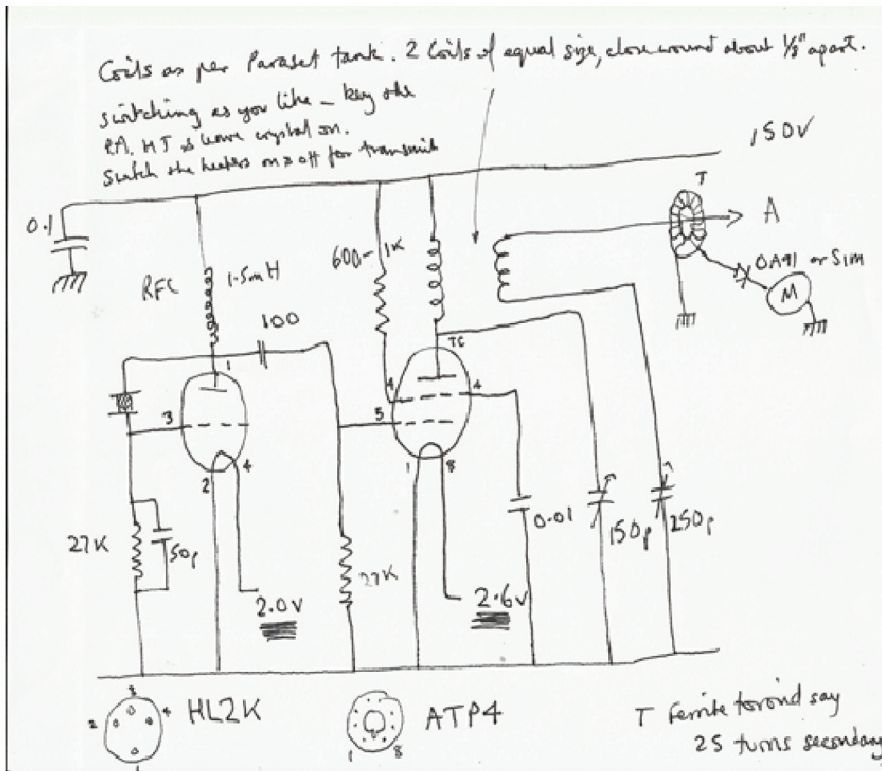 Coils as per Paraset tank. 2 Coils of equal size, close wound about 1/8" apart.
switching as you like – key the
PA. HT & leave crystal on.
Switch the heaters on & off for transmit
150V
T
A
0.1
RFC
1.5mH
600-1K
OA91 or Sim
M
100
1
TC
4
4
3
5
2
4
1
8
27K
50p
27K
0.01
150p
250p
2.0V
2.6V
3
2
4
1
HL2K
1
8
ATP4
T Ferrite toroid say
25 turns secondary